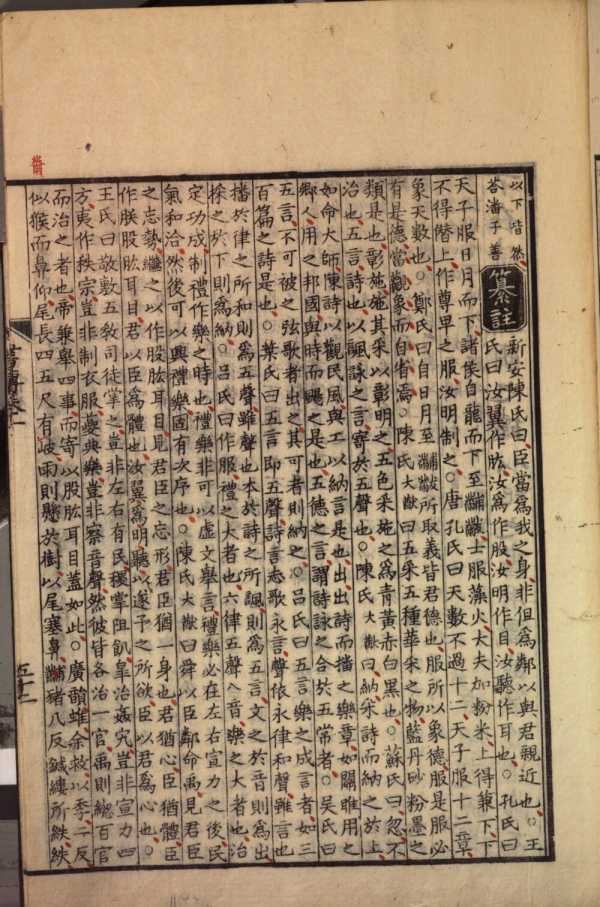 以下皆然
答潘子善
纂註
新安陳氏曰臣當為我之身非但為鄰以與君親近也○王
氏曰汝翼作肱汝為作股汝明作目汝聽作耳也○孔氏曰
天子服日月而下諸侯自龍而下至黼黻士服藻火大夫加粉米上得兼下下
不得僭上作尊卑之服汝明制之○唐孔氏曰天數不過十二天子服十二章
象天數也○鄭氏曰自日月至黼黻所取義皆君德也服所以象德服是服必
有是德當觀象而自省焉○陳氏大猷曰五采五種華采之物藍丹砂粉墨之
類是也彰施施其采以彰明之五色采施之為青黃赤白黑也○蘇氏曰忽不
治也五言詩也以諷詠之言寄於五聲也○陳氏大猷曰納采詩而納之於上
如命大師陳詩以觀民風與工以納言是也出出詩而播之樂章如關雎用之
鄉人用之邦國與時而颺之是也五德之言謂詩詠之合於五常者○吳氏曰
五言不可被之弦歌者出之其可者則納之○呂氏曰五言樂之成言者如三
百篇之詩是也○葉氏曰五言即五聲詩言志歌永言聲依永律和聲雖言也
播於律之所和則為五聲雖聲也本於詩之所諷則為五言文之於音則為出
採之於下則為納○呂氏曰作服禮之大者也六律五聲八音樂之大者也治
定功成制禮作樂之時也禮樂非可以虛文舉言禮樂必在左右宣力之後民
氣和洽然後可以興禮樂固有次序也○陳氏大猷曰舜以臣鄰命禹見君臣
之忘勢繼之以作股肱耳目見君臣之忘形君臣猶一身也君猶心臣猶體臣
作朕股肱耳目君以臣為體也汝翼為明聽以遂予之所欲臣以君為心也○
王氏曰敬敷五教司徒掌之豈非左右有民稷掌阻飢皋治姦宄豈非宣力四
方夷作秩宗豈非制衣服夔典樂豈非察音聲然彼皆各治一官禹則總百官
而治之者也帝兼舉四事而寄以股肱耳目蓋如此○廣韻蜼余救以季二反
似猴而鼻仰尾長四五尺有岐雨則懸於樹以尾塞鼻黼豬八反鍼縷所紩紩
書傳卷一